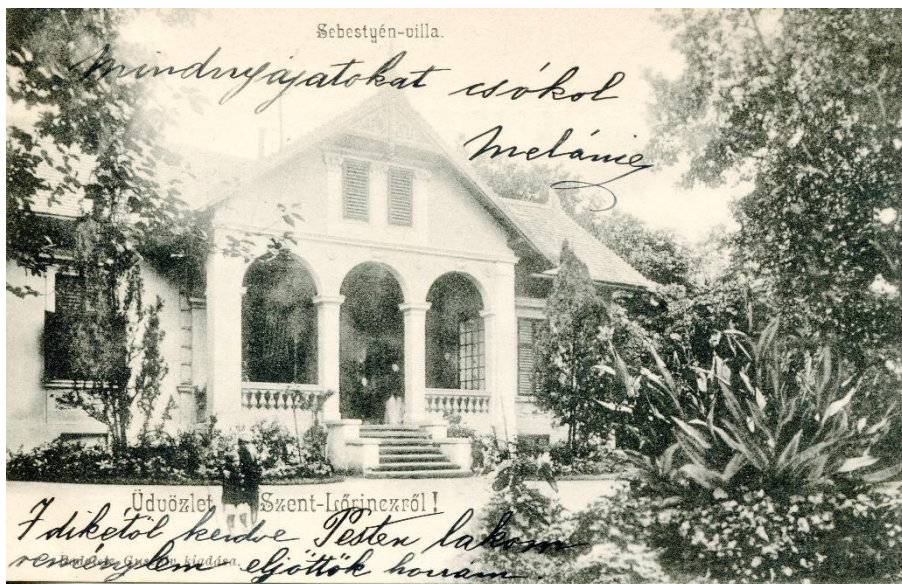 Sebestyén-villa.
mindnyájatokat csókol
Melánie
Üdvözlet Szent-Lőrinczről!
7 dikétöl kezdve Pesten lakom
reménylem eljöttök hozzám.
kiadása.